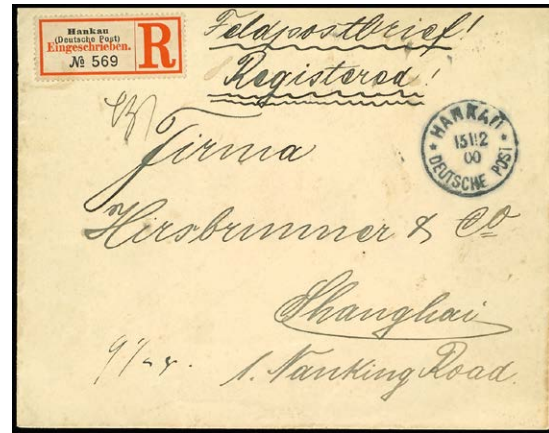 Hankau
(Deutsche Post)
Eingeschrieben.
№ 569
R
Feldpostbrief!
Registered!
HANKAU
13 12
00
DEUTSCHE POST
Firma
Hirsbrunner & Co
Shanghai
1. Nanking Road.